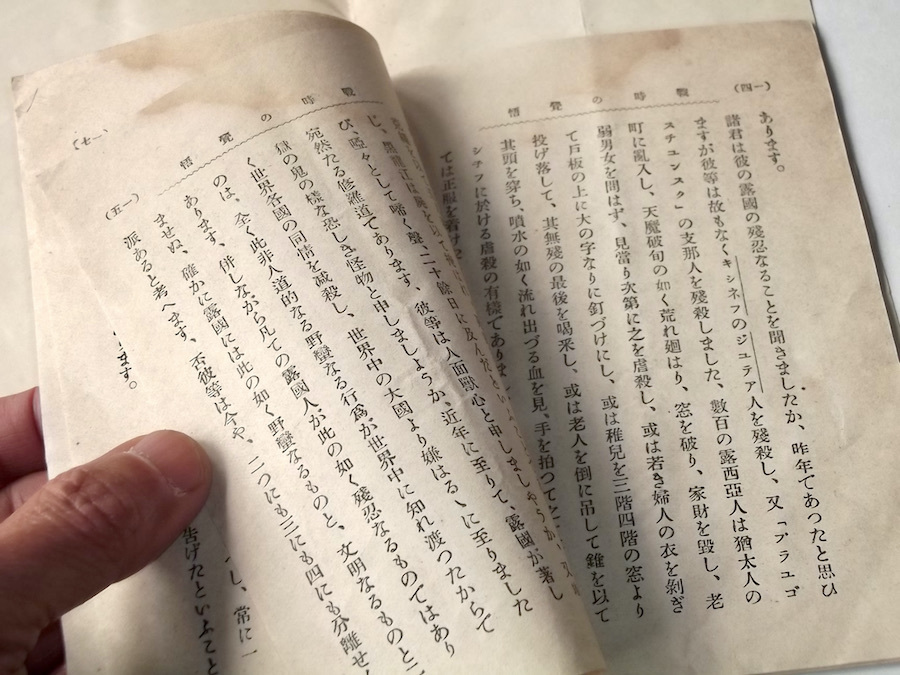 (一四)
戰時の覺悟
あります。
諸君は彼の露國の殘忍なることを聞きましたか、昨年であつたと思ひ
ますが彼等は故もなくキシネフのジユテア人を殘殺し、又「ブラユゴ
スチエンスク」の支那人を殘殺しました、數百の露西亞人は猶太人の
町に亂入し、天魔破旬の如く荒れ廻はり、窓を破り、家財を毀し、老
弱男女を問はず、見當り次第に之を虐殺し、或は若き婦人の衣を剝ぎ
て戸板の上に大の字なりに釘づけにし、或は稚兒を三階四階の窓より
投げ落して、其無殘の最後を喝采し、或は老人を倒に吊して錐を以て
其頭を穿ち、噴水の如く流れ出づる血を見、手を拍つて
シチフに於ける虐殺の有樣であり
ては正服を着け
戰時の覺悟
(一五)
び、啞々として啼く聲、二十餘日に及んだと
宛然たる修羅道であります、彼等は人面獸心と申しましやうか
獄の鬼の樣な恐しき怪物と申しましようか、近年に至りて、露國が著し
く世界各國の同情を減殺し、世界中の大國より嫌はるゝに至りました
のは、全く此非人道的なる野蠻なる行爲が世界中に知れ渡つたからて
あります、併しながら凡ての露國人が此の如く殘忍なるものてはあり
ませぬ、確かに露國には此の如く野蠻なるものと、文明なるものと二
派あると考へます、否彼等は今や、二つにも三にも四にも分離せ
ます。
し、常に一
告げたといふこと